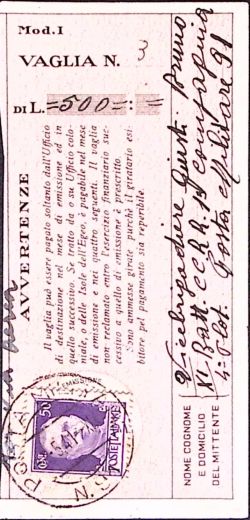 Mod. I
VAGLIA N. 3
DI L. =500=:=
AVVERTENZE
Il vaglia può essere pagato soltanto dall'Ufficio
di destinazione nel mese di emissione ed in
quello successivo. Se tratto da o su Ufficio colo-
niale, o delle Isole dell'Egeo, è pagabile nel mese
di emissione e nei quattro seguenti. Il vaglia
non reclamato entro l'esercizio finanziario suc-
cessivo a quello di emissione è prescritto.
Sono ammesse girate purchè il giratario esi-
bitore pel pagamento sia reperibile.
NOME COGNOME
E DOMICILIO
DEL MITTENTE
Giusti Bruno
XI Batt. CC.RR. 1ª compagnia
Militare 91
POSTE ITALIANE
50